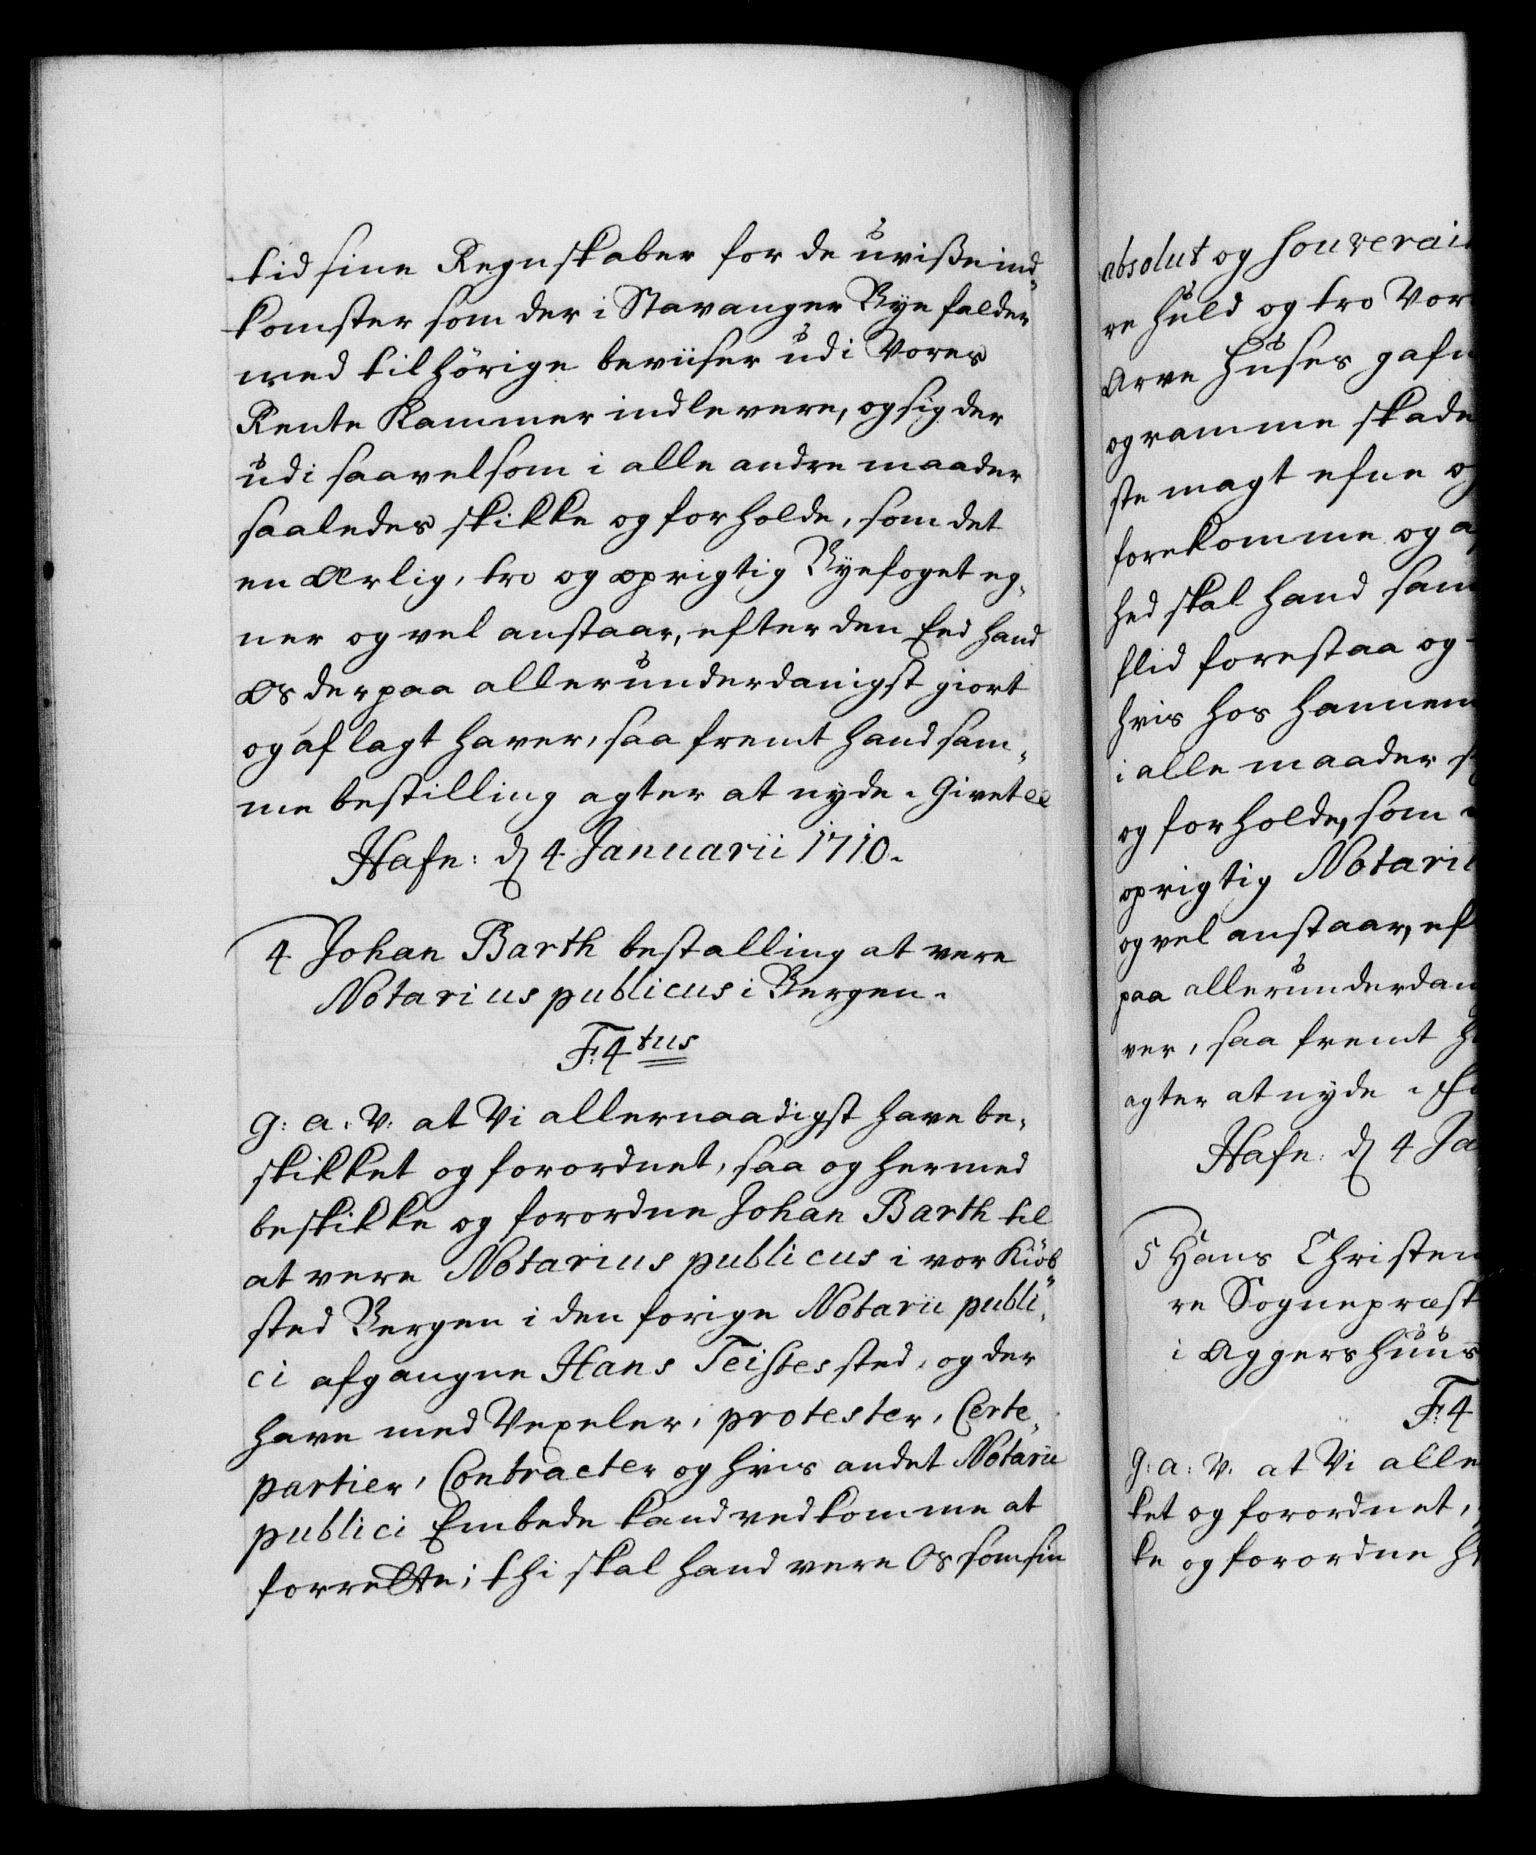 tid sine Regnskaber for de uviße ind-
komster som der i Stavanger Bye falder
med tilhörige beviiser udi Vores
Rente Kammer indlevere, og sig der
udi saavelsom i alle andre maader
saaledes skikke og forholde, som det
en ærlig, tro og oprigtig Byefoget eg-
ner og vel anstaar, efter den Eed hand
Os derpaa allerunderdanigst giort
og aflagt haver, saa fremt hand sam-
me bestilling agter at nyde. Givet etc
Hafn: d 4 Januarii 1710.
4 Johan Barth bestalling at vere
Notarius publicus i Bergen.
F: 4tus
G: A: V: at Vi allernaadigst have be-
skikket og forordnet, saa og hermed
beskikke og forordne Johan Barth til
at vere Notarius publicus i vor Kiöb-
sted Bergen i den forige Notarii publi-
ci afgangne Hans Teistes sted, og der
have med Vexeler, protester, Certe-
partier, Contracter og hvis andet Notarii
publici Embede kand vedkomme at
forrette; thi skal hand vere Os som sin
absolut og souverai
re huld og tro Vor
Arve Huses gafn
og ramme skade
ste magt efne og
forekomme og a
hed skal hand sam
flid forestaa og
hvis hos hannem
i alle maader s
og forholde, som
oprigtig Notarii
og vel anstaar, ef
paa allerunderdan
ver, saa fremt h
agter at nyde.
Hafn: d 4 Ja
5 Hans Christen
re Sognepræst
i Aggershuus
F: 4
G: A: V: at Vi alle
ket og forordnet,
ke og forordne H